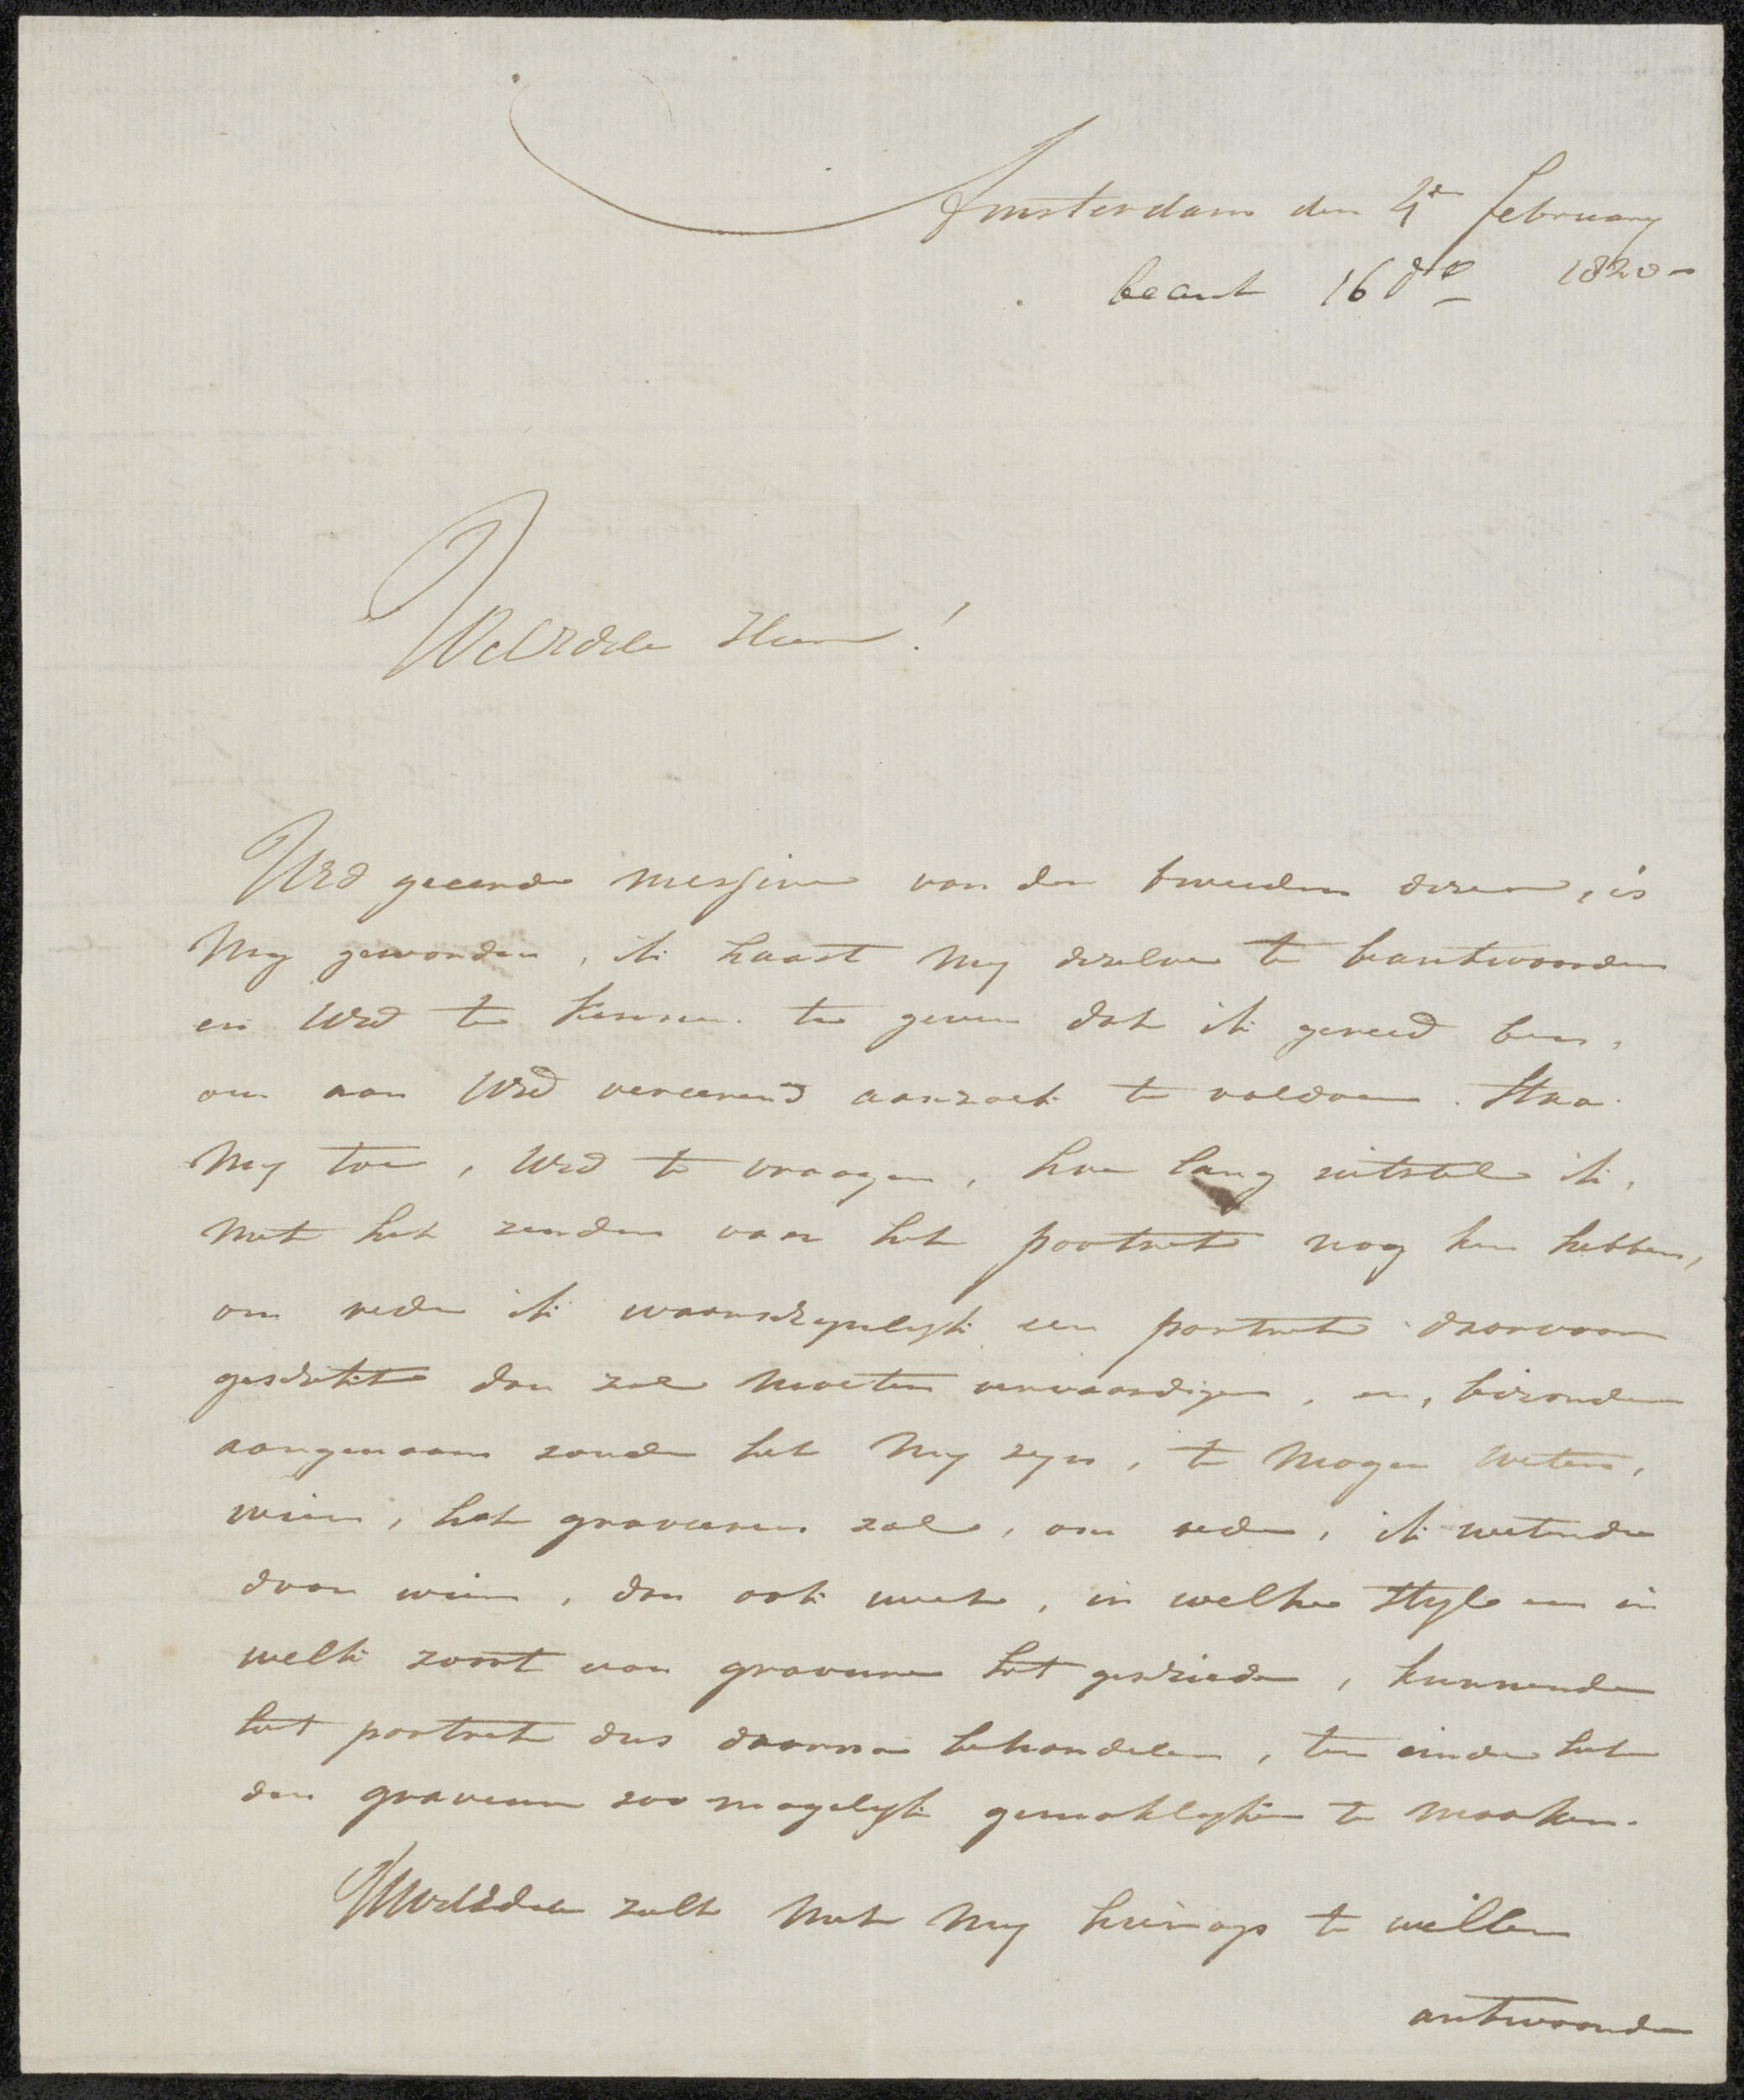 Amsterdam den 4e february
beant 16 do 1820
Waarde Heer!
UEd geëerde messive van den tweeden dezer, is
my geworden, ik haast my dezelve te beantwoorden
en UEd te kennen te geven dat ik gereed ben,
om aan UEd vereerend aanzoek te voldoen. Staa
my toe, UEd te vraagen, hoe lang uitstel ik,
met het zenden van het portret nog kan hebben,
om reden ik waarschynlyk een portret daarvoor
geschikt dan zal moeten vervaardigen, en, bizonder
aangenaam zoude het my zyn, te mogen weten,
wien, het graveeren zal, om reden, ik wetende
door wien, dan ook weet, in welke styl en in
welk zoort van gravure het geschieden, kunnende
het portret dus daarna behandelen, ten einde het
den graveur zoo mogelyk gemaklyker te maaken.
zult met my hierop te willen
antwoorden